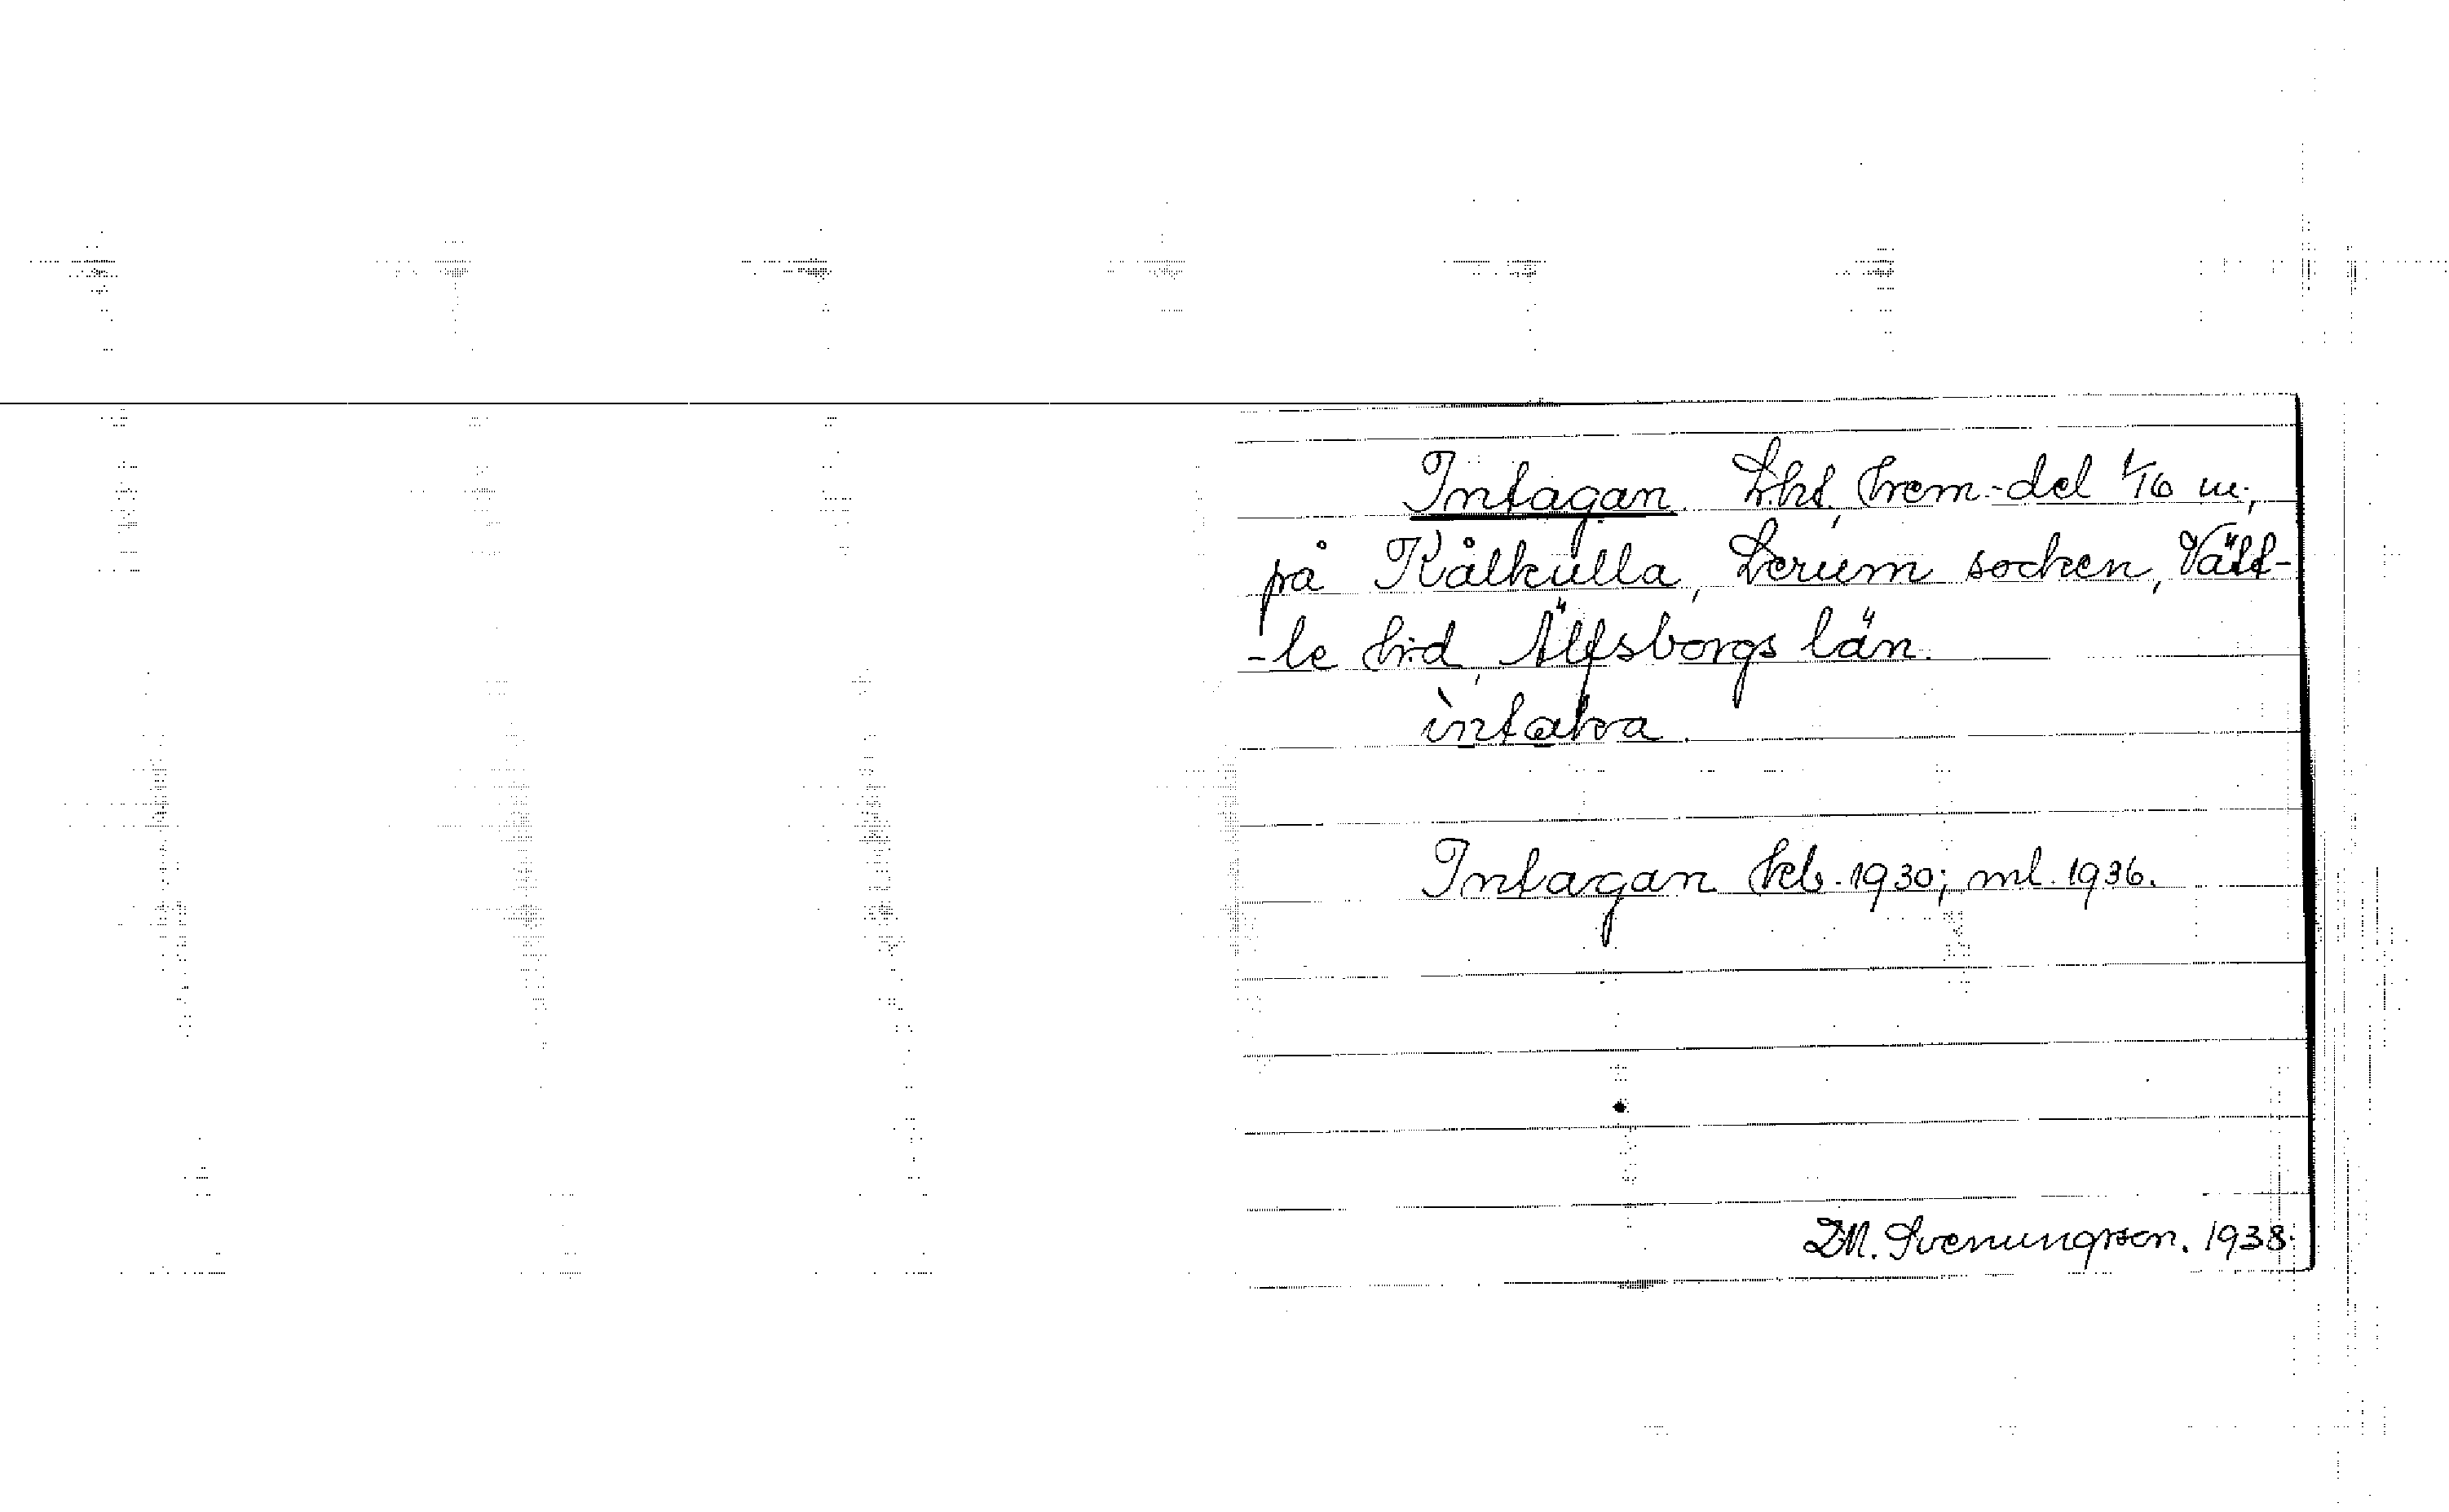 Intagan. Lht, hem.-del 1/16 m.,
på Kålkulla, Lerum socken, Vätt-
-le hd, Älfsborgs län.
ìntaka.
Intagan kb. 1930; ml. 1936.
D.M. Svenungsson. 1938.